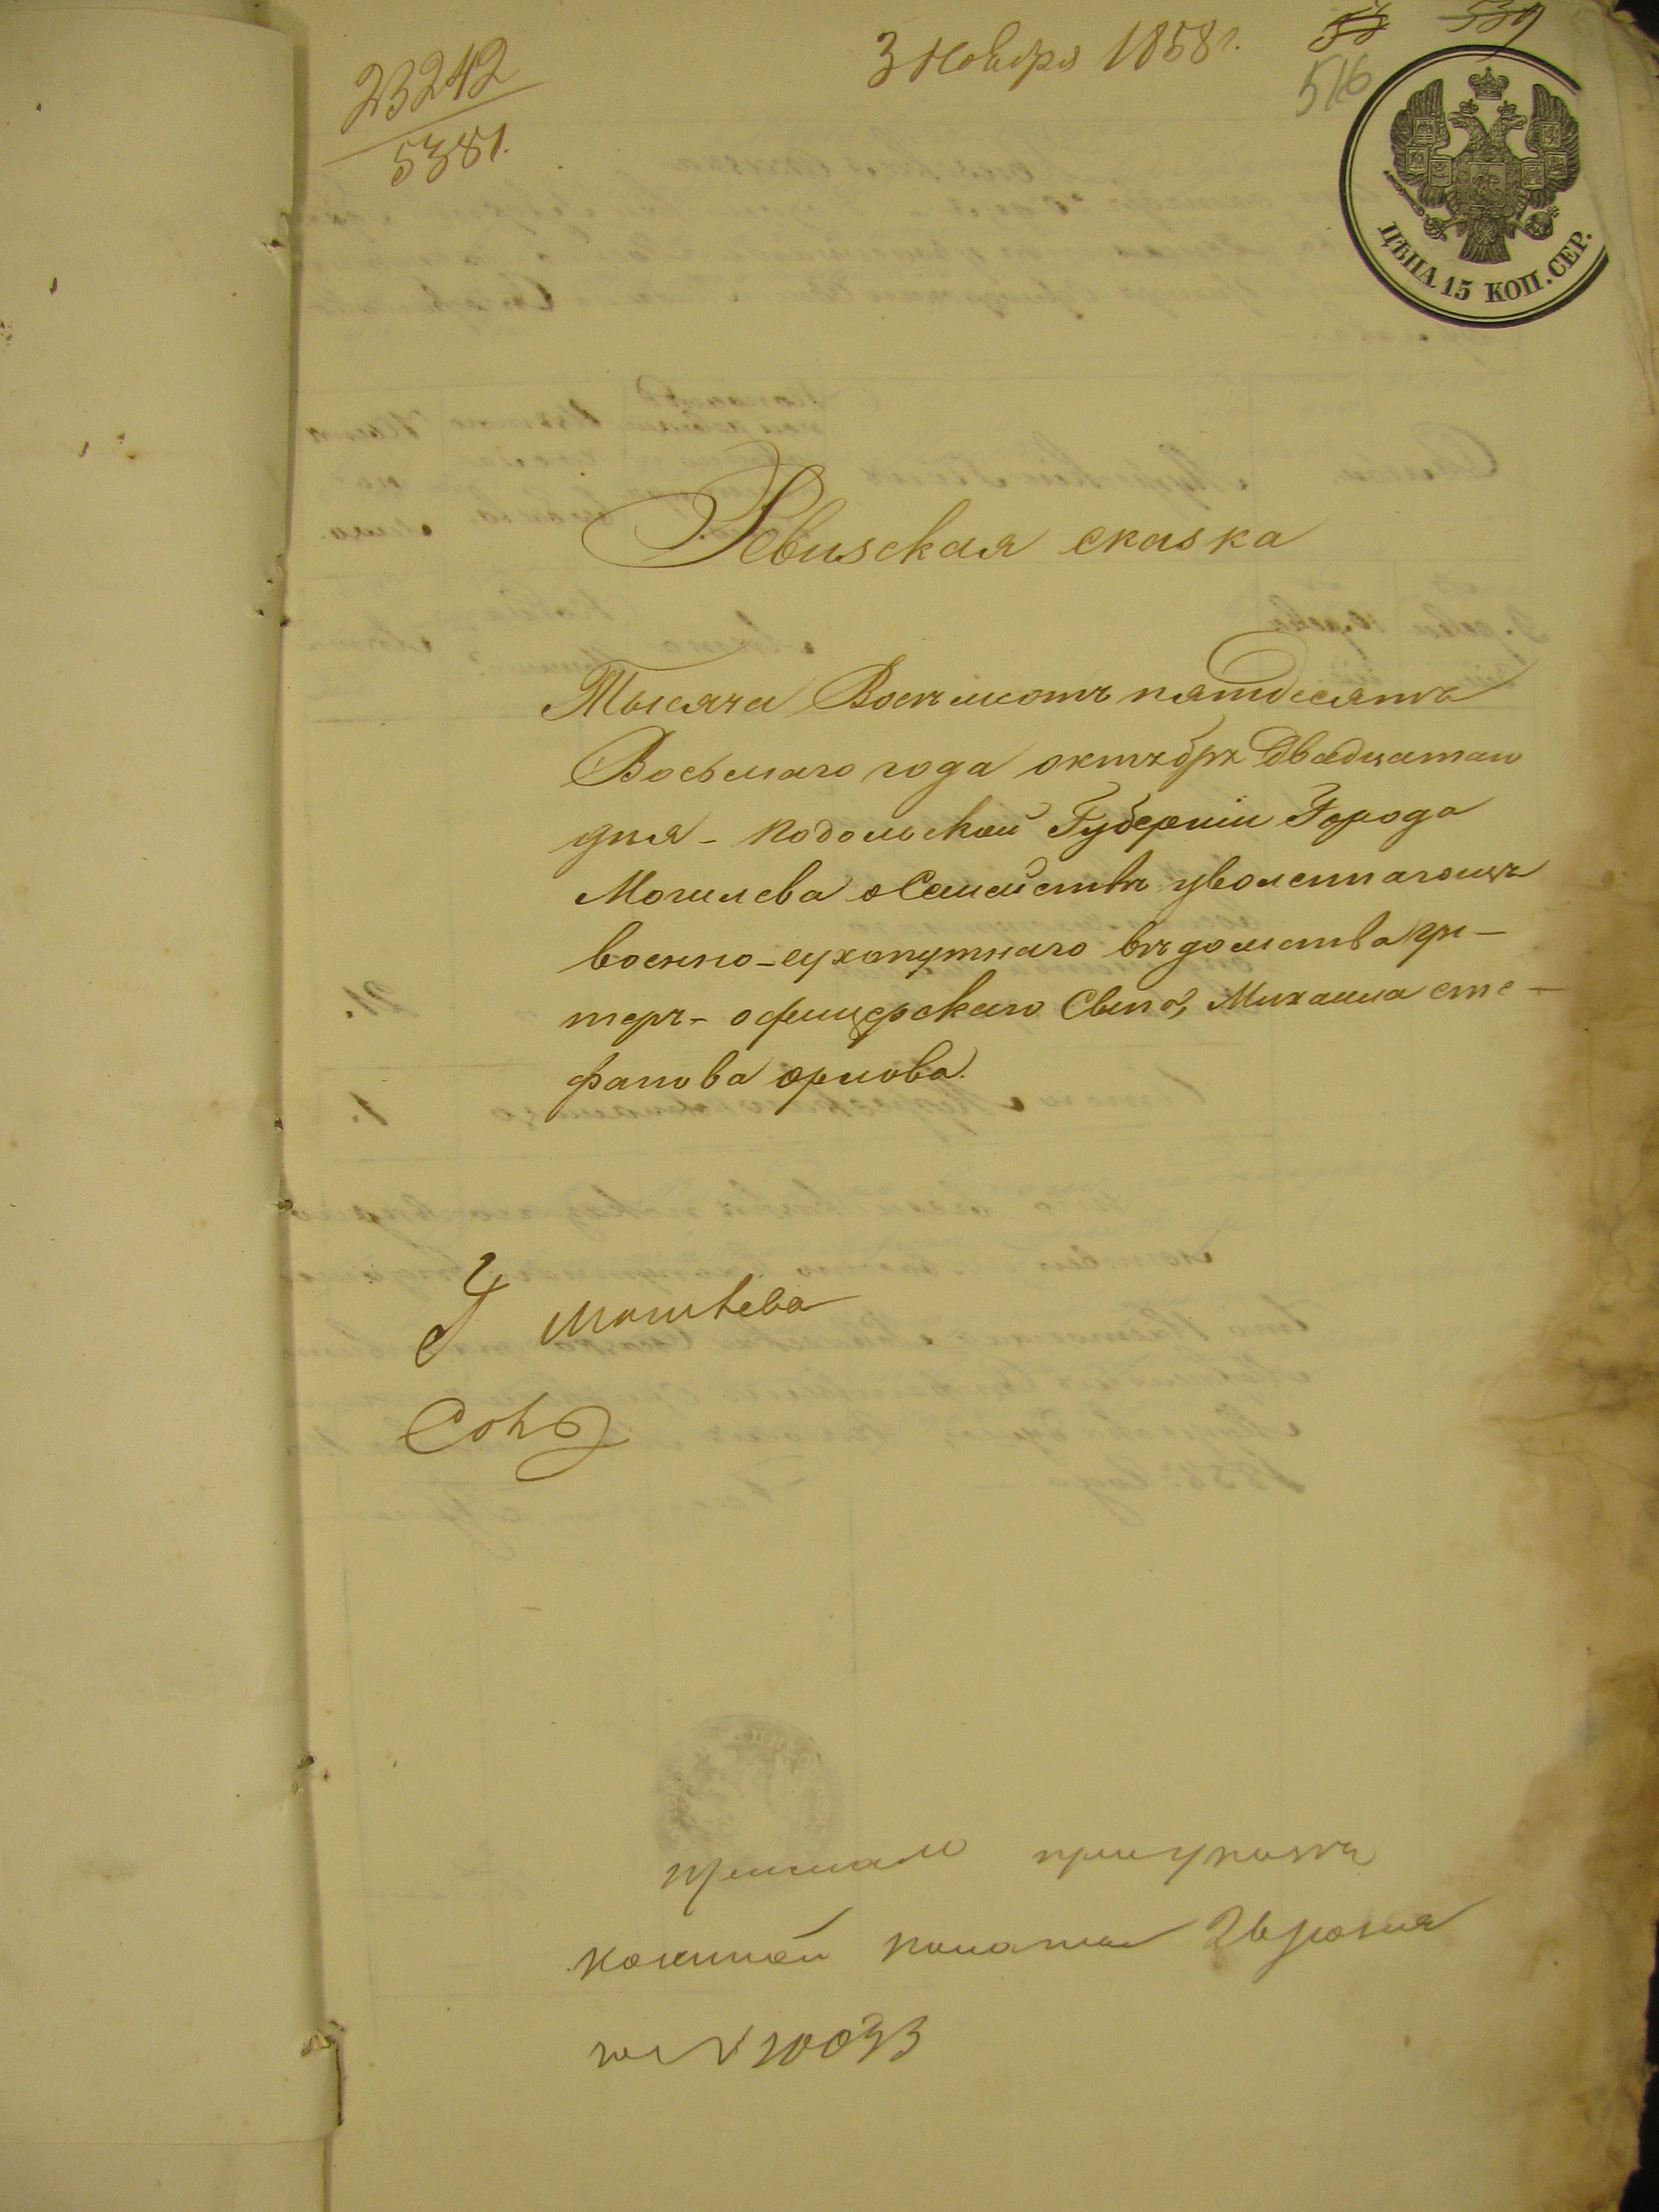 23242
5381.
3 Ноября 1858 г.
539
516
ЦѢНА 15 КОП. СЕР.
Ревизская сказка
Тысяча Восемсотъ пятдесятъ
Восьмаго года октября Двадцатаго
дня - Подольской Губерніи Города
Могилева о Семействѣ уволеннагоизъ
военно-сухопутнаго вѣдомства ун-
теръ-офицерскаго Сына, Михаила сте-
фанова орлова.
Могилева
казенной палаты
№ 10033